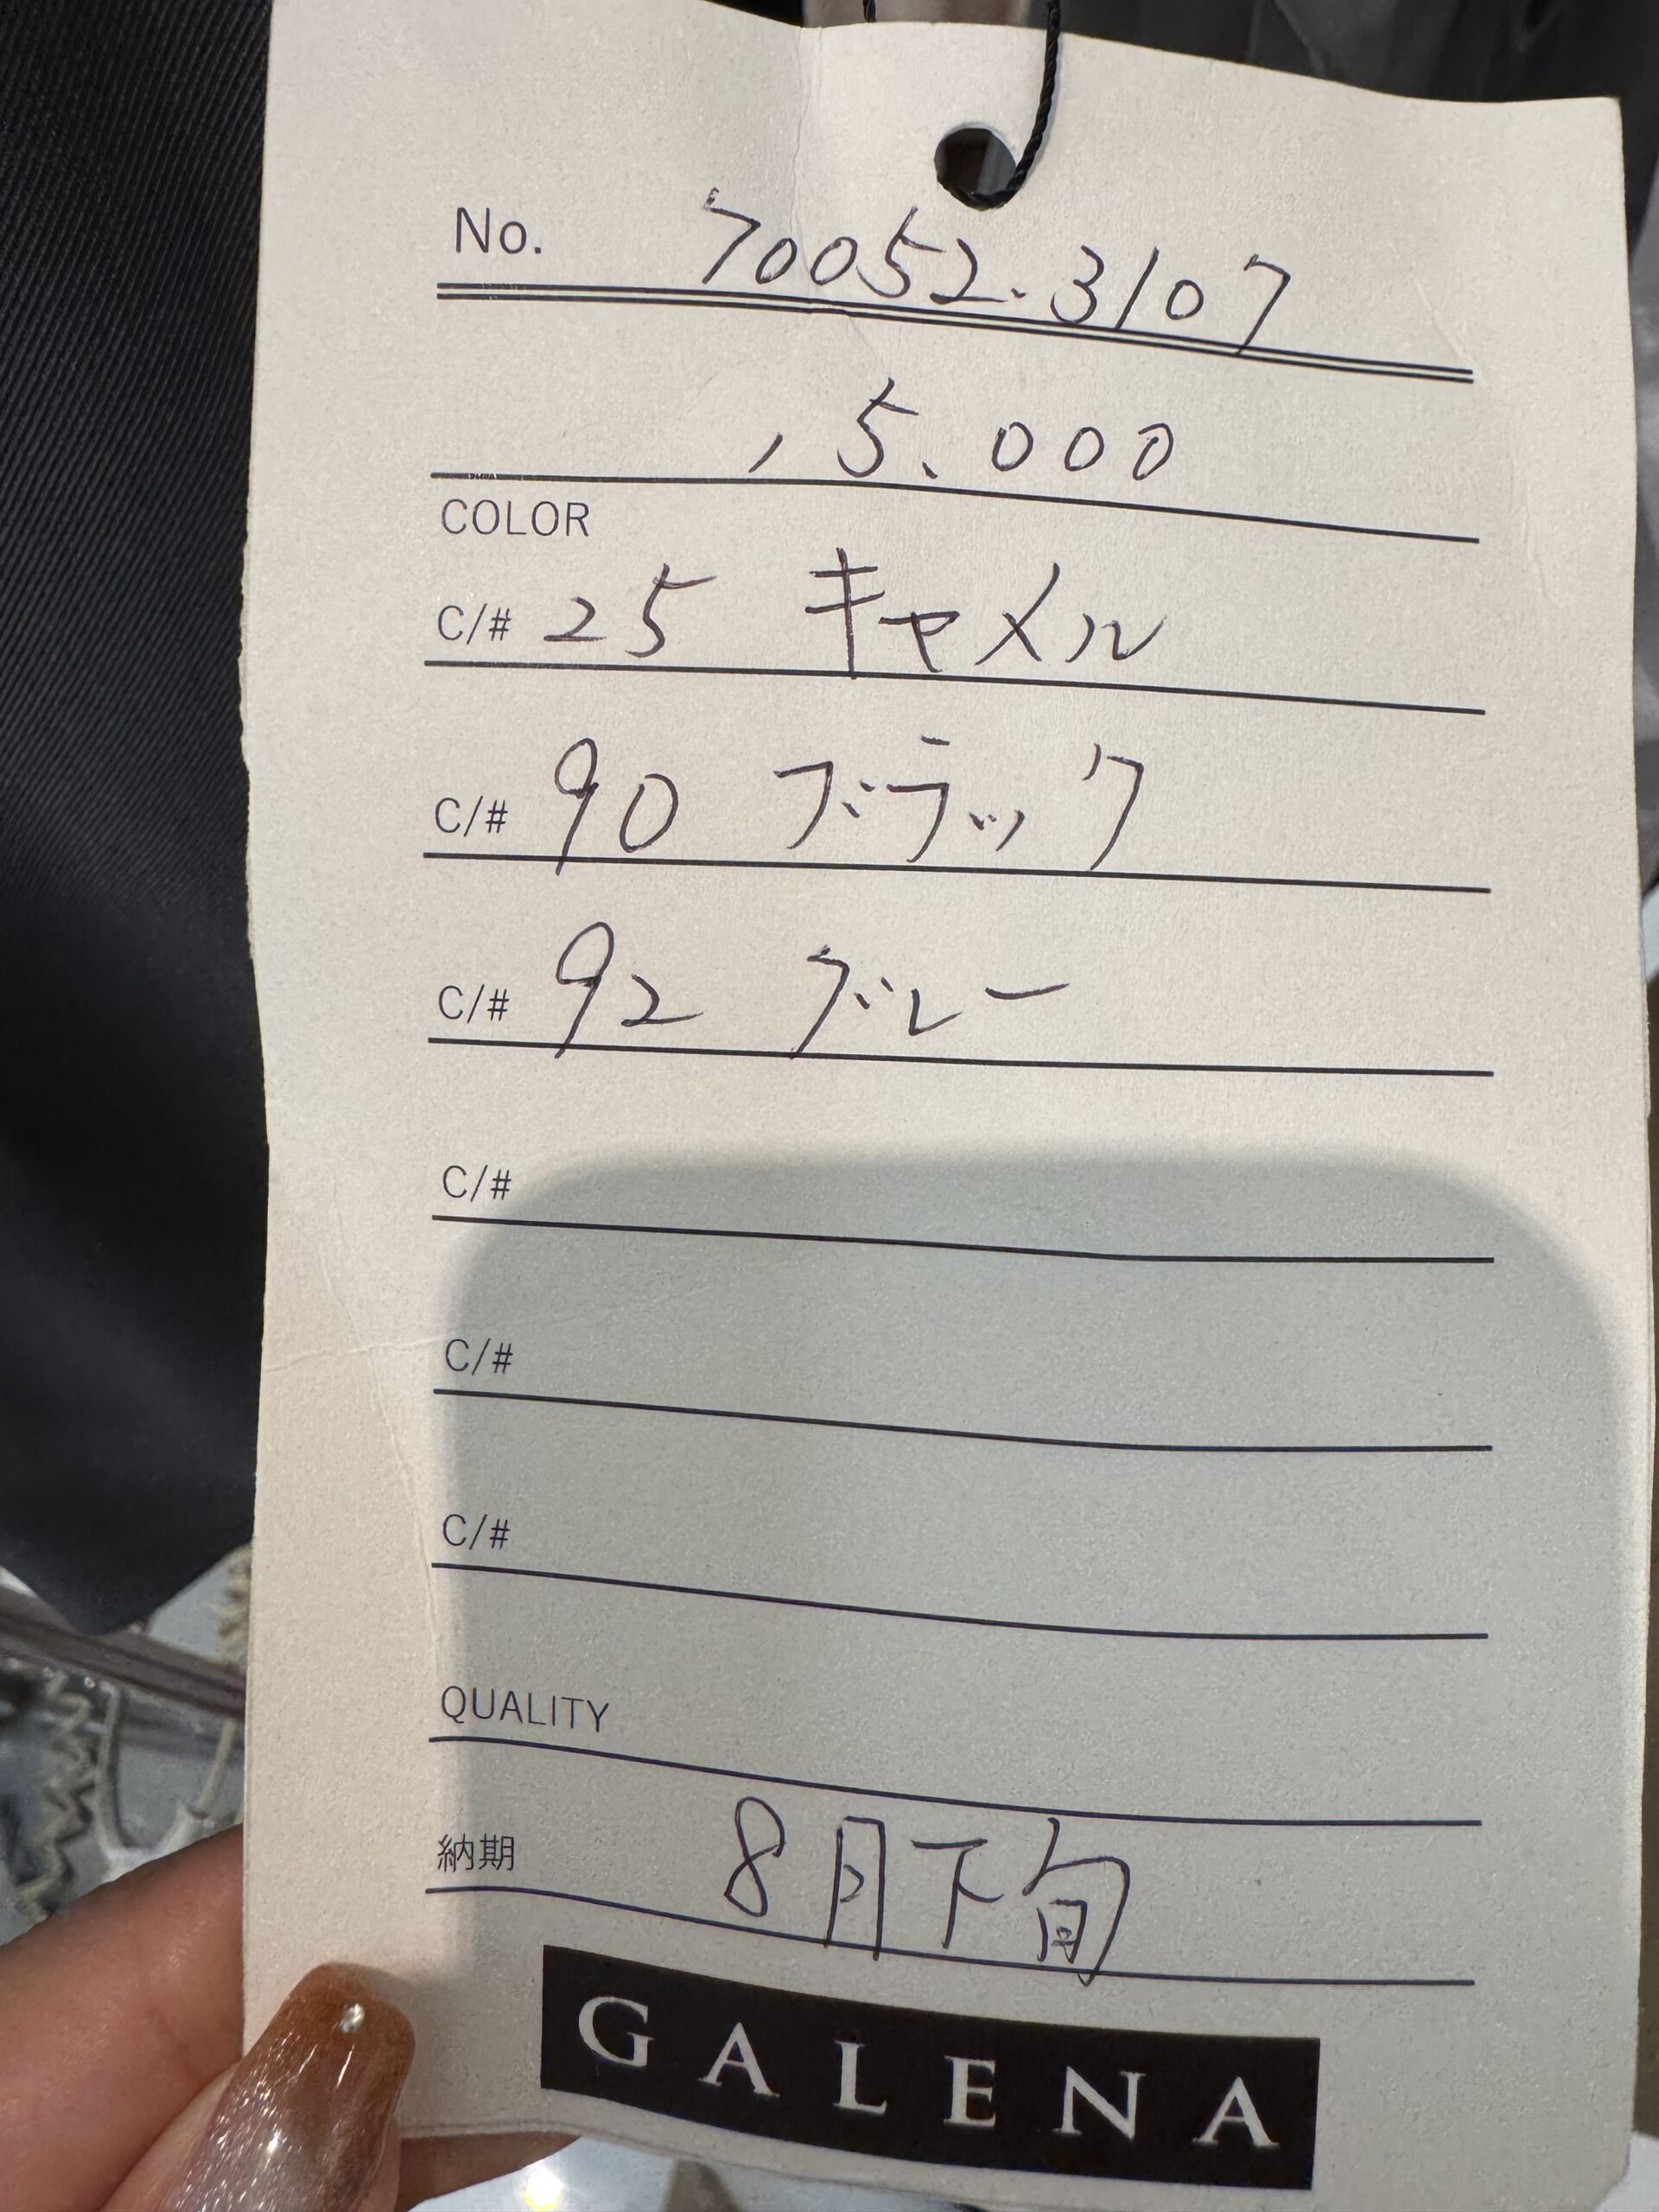 No. 70052.3107
15.000
COLOR
C/# 25 キャメル
C/# 90 ブラック
C/# 92 グレー
C/#
C/#
C/#
QUALITY
納期 8月下旬
GALENA